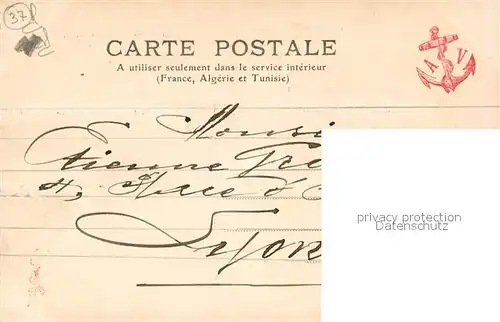 37
CARTE POSTALE
A utiliser seulement dans le service intérieur
(France, Algérie et Tunisie)
A V
Monsi
Etienne Fre
4, Place d
Lyon
privacy protection
Datenschutz